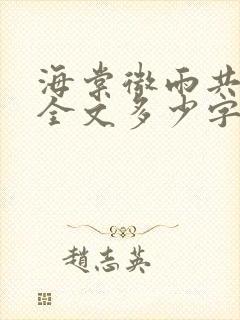 海棠微雨共
全文多少字
趙志英